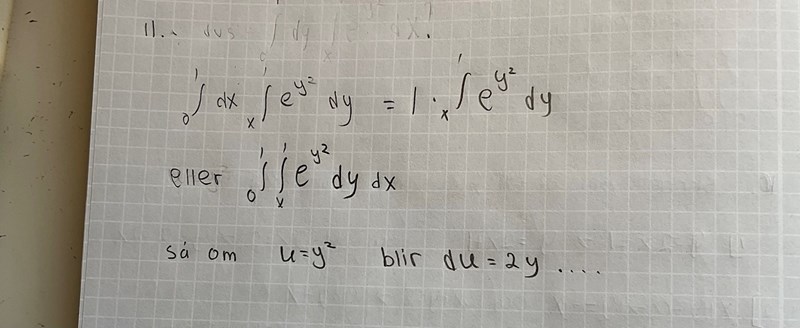 11. dvs ∫ dy ∫ dx.
₀∫¹ dx ₓ∫¹ e^{y²} dy = 1 · ₓ∫¹ e^{y²} dy
eller ₀∫¹ ₓ∫¹ e^{y²} dy dx
så om u=y² blir du = 2y ....